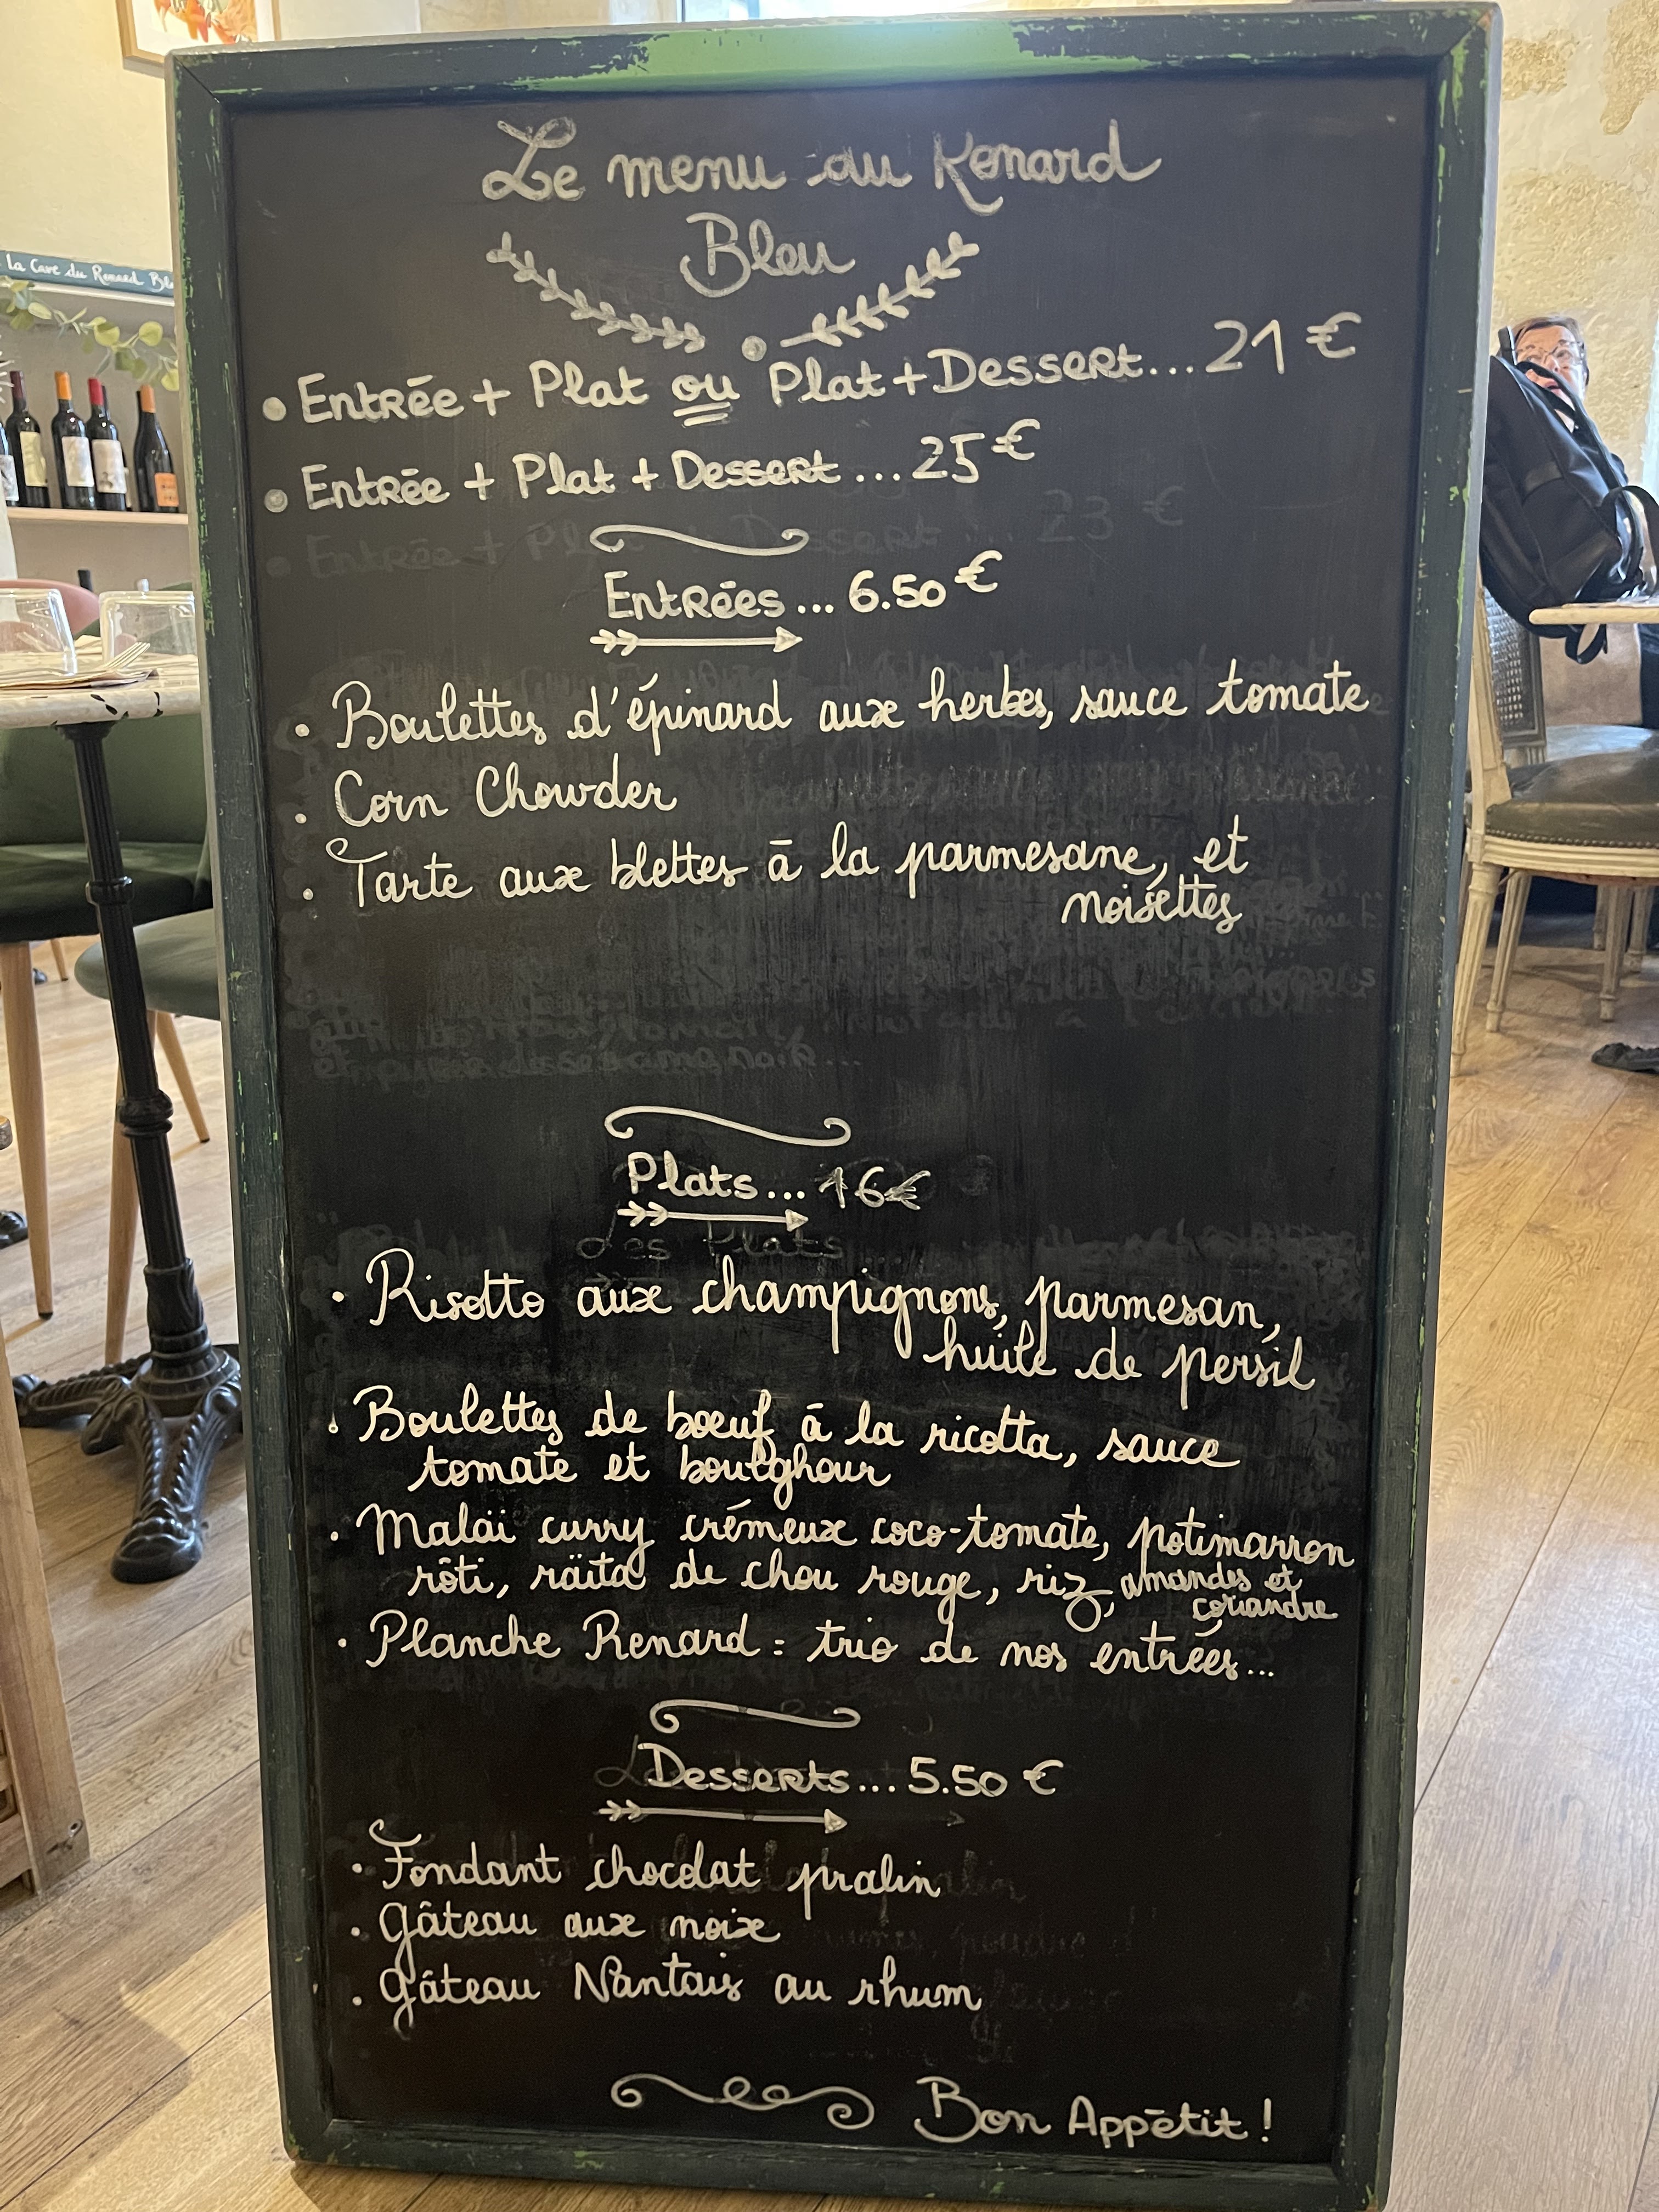 Le menu du Renard
Bleu
La Cave du Renard Bl
• Entrée + Plat ou Plat + Dessert... 21 €
• Entrée + Plat + Dessert ... 25 €
• Entrée + Plat + Dessert ... 23 €
Entrées ... 6.50 €
• Boulettes d'épinard aux herbes, sauce tomate
• Corn Chowder
• Tarte aux blettes à la parmesane, et
noisettes
Plats ... 16€
Les Plats
• Risotto aux champignons, parmesan,
huile de persil
• Boulettes de boeuf à la ricotta, sauce
tomate et boulghour
• Malaï curry crémeux coco-tomate, potimarron
rôti, raïta de chou rouge, riz, amandes et
coriandre
• Planche Renard : trio de nos entrées...
Desserts... 5.50 €
• Fondant chocolat pralin
• Gâteau aux noix
• Gâteau Nantais au rhum
Bon Appétit !